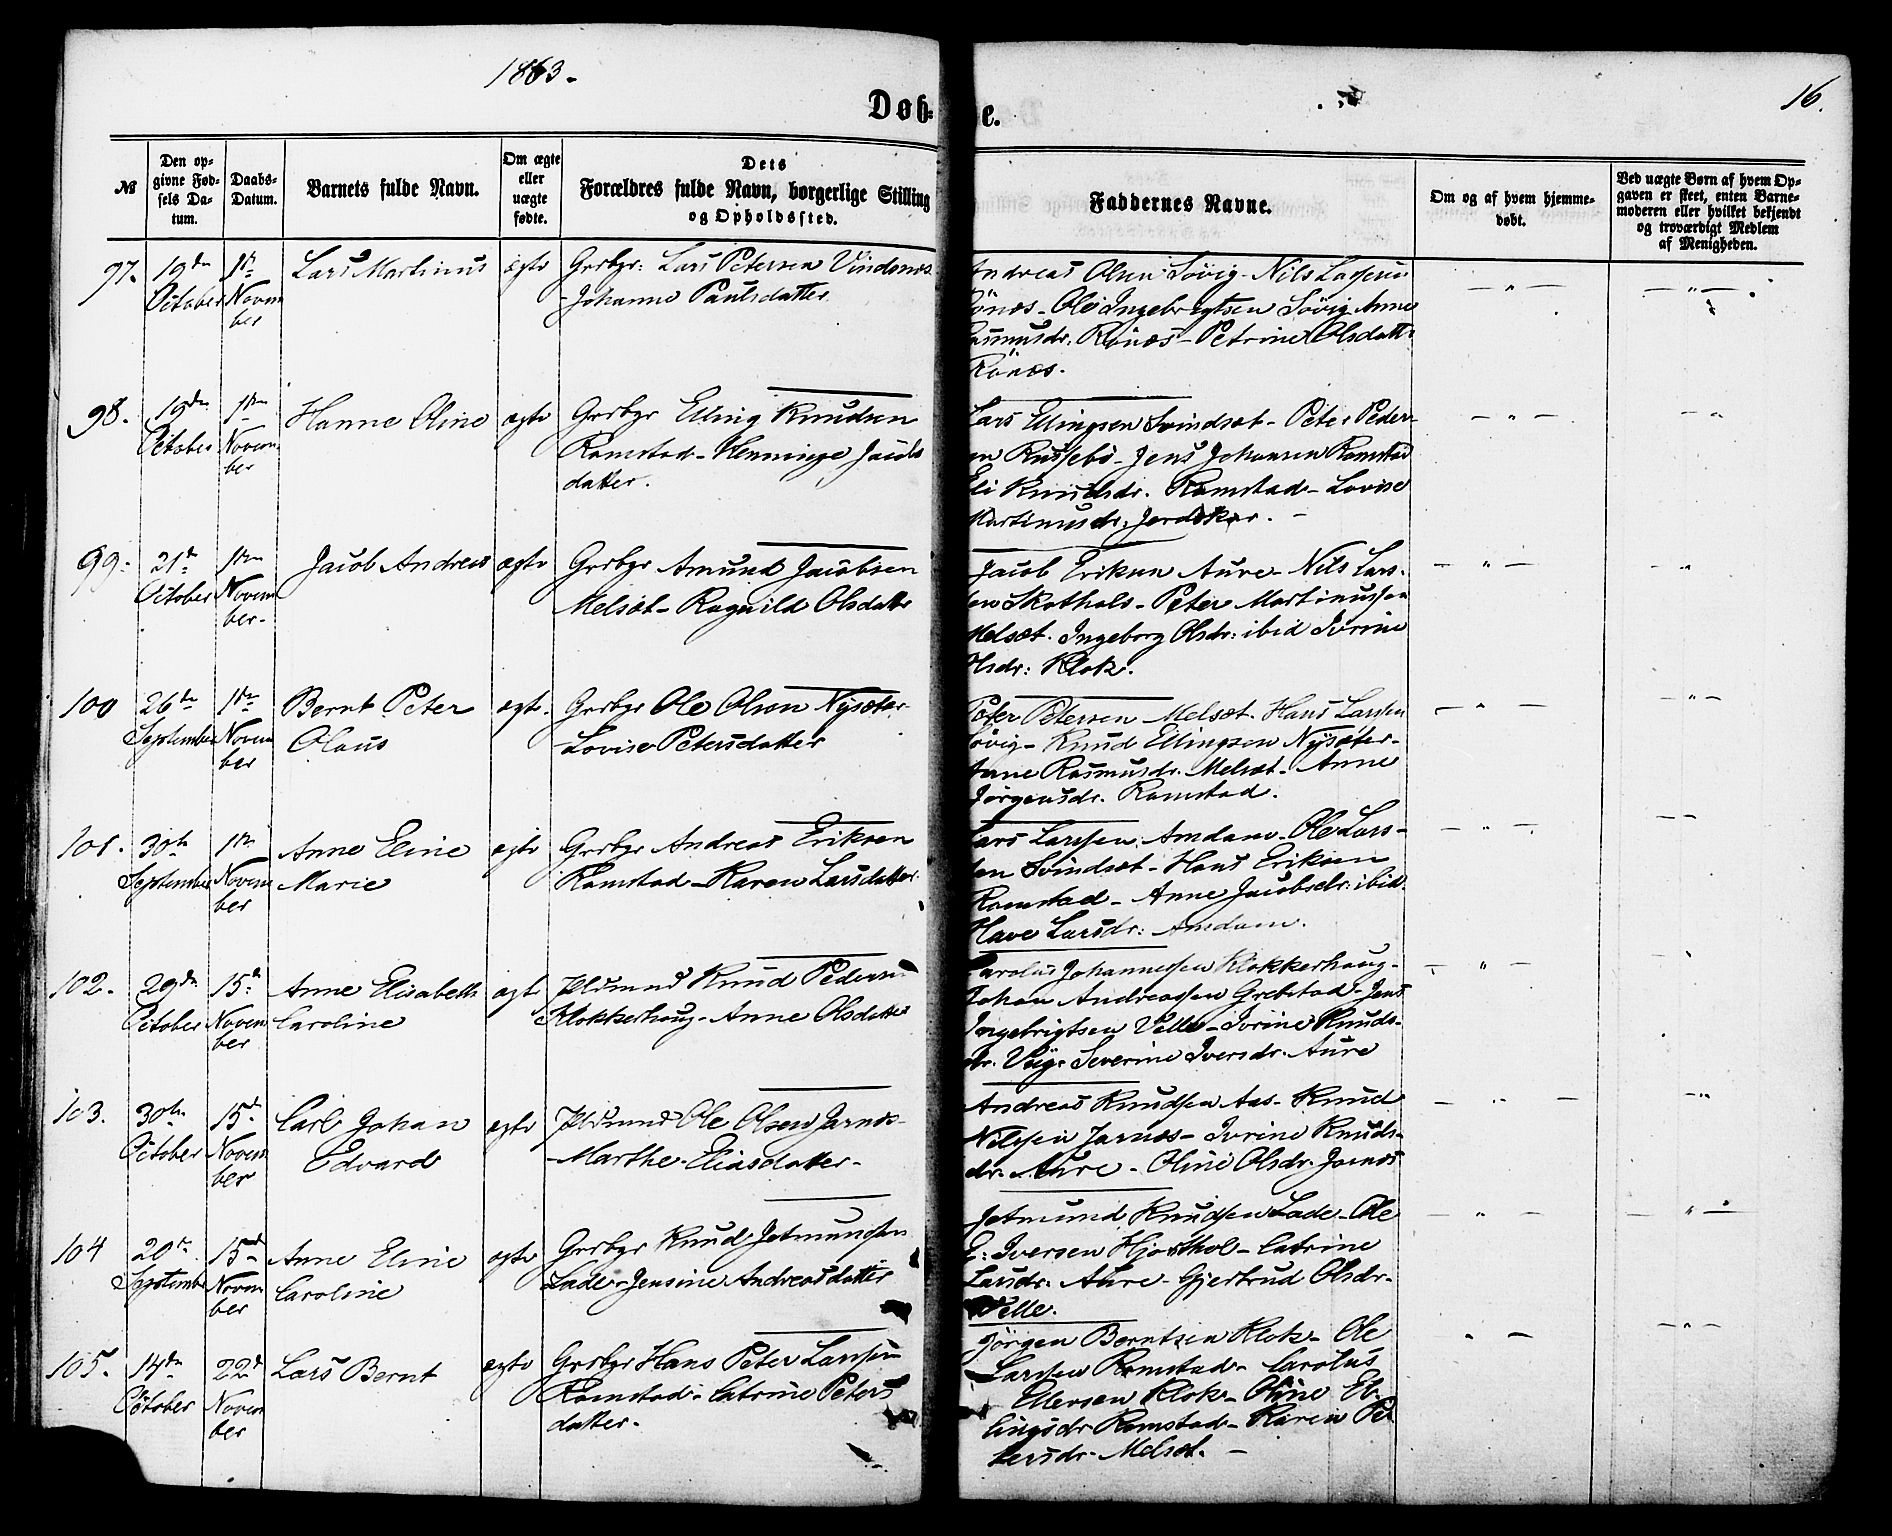 1863.
16.
Døb-
e.
№
Den op-
givne Fød-
sels Da-
tum.
Daabs-
Datum.
Barnets fulde Navn.
Om ægte
eller
uægte
fødte.
Dets
Forældres fulde Navn, borgerlige Stilling
og Opholdssted.
Faddernes Navne.
Om og af hvem hjemme-
døbt.
Ved uægte Børn af hvem Op-
gaven er skeet, enten Barne-
moderen eller hvilket bekjendt
og troværdigt Medlem
af Menigheden.
97.
19de
October
1ste
Novem
ber
Lars Martinus
ægte
Grdbgr: Lars Petersen Vindsnæs
- Johanne Paulsdatter
Andreas Olsen Sövig - Nils Larssen
Rönæs - Ole Ingebrigtsen Sövig Anne
Rasmusdr: Rönæs - Petrine Olsdatter
Rönæs.
98.
19de
October
1ste
Novem
ber
Hanne Oline
ægte
Grdbgr Elling Knudsen
Ramstad - Henninge Jacobs
datter.
Lars Ellingsen Svindsæt - Peter Peder-
sen Russebö - Jens Johansen Ramstad
Eli Knudsdr. Ramstad - Lovise
Martinusdr.
99.
21de
October
1ste
Novem
ber.
Jacob Andreas
ægte
Grdbgr Amund Jacobsen
Melsæt - Ragnild Olsdatter
Jacob Eriksen Aure - Nils Lars-
sen Skothols - Peter Martinussen
Melsæt. Ingeborg Olsdr: ibid Ivrine
Olsdr: Klok.
100
26de
September
1ste
Novem
ber
Bernt Peter
Olaus
ægte.
Grdbgr Ole Olsen Nysæter
- Lovise Petersdatter
Peter Petersen Melsæt. Hans Larssen
Sövig - Knud Ellingsen Nysæter -
Anne Rasmusdr. Melsæt - Anne
Jörgensdr. Ramstad.
101.
30te
September
1ste
Novem
ber
Anne Eline
Marie
ægte
Grdbgr Andreas Eriksen
Ramstad - Karen Larsdatter.
Lars Larssen Amdam - Ole Lars-
sen Svindsæt - Hans Eriksen
Ramstad - Anne Jacobsdr: ibid.
Larsdr: Amdam.
102.
29de
October
15de
Novem
ber
Anne Elisabeth
Caroline
ægte
Knud Pedersen
Klokkerhaug - Anne Olsdatter
Carolus Johannessen Klokkerhaug -
Johan Andreassen Grebstad - Jens
Ingebrigtsen Velle - Ivrine Knuds-
dr. Severine Iversdr. Aure
103.
30te
October
15de
Novem
ber
Carl Johan
Edvard
ægte
Ole Olsen Jarnæs -
- Marthe Eliasdatter -
Andreas Knudssen Aas - Knud
Nilssen Jarnæs - Ivrine Knuds-
dr. Aure - Oline Olsdr. Jarnæs
104
20de
September
15de
Novem
ber
Anne Eline
Caroline
ægte
Grdbgr Knud Jetmundsen
Lade - Jensine Andreasdatter
Jetmund Knudssen Lade - Ole
E: Iversen Hjorthol - Catrine
Larsdr. Aure - Gjertrud Olsdr.
Velle.
105.
14de
October
22de
Novem
ber
Lars Bernt
ægte
Grdbgr Hans Peter Larssen
Ramstad - Catrine Peters
datter.
Jörgen Berntsen Klok - Ole
Larssen Ramstad - Carolus
Ellersen Klok - Oline El-
lingsdr Ramstad - Karen Pe
tersdr - Melsæt. -